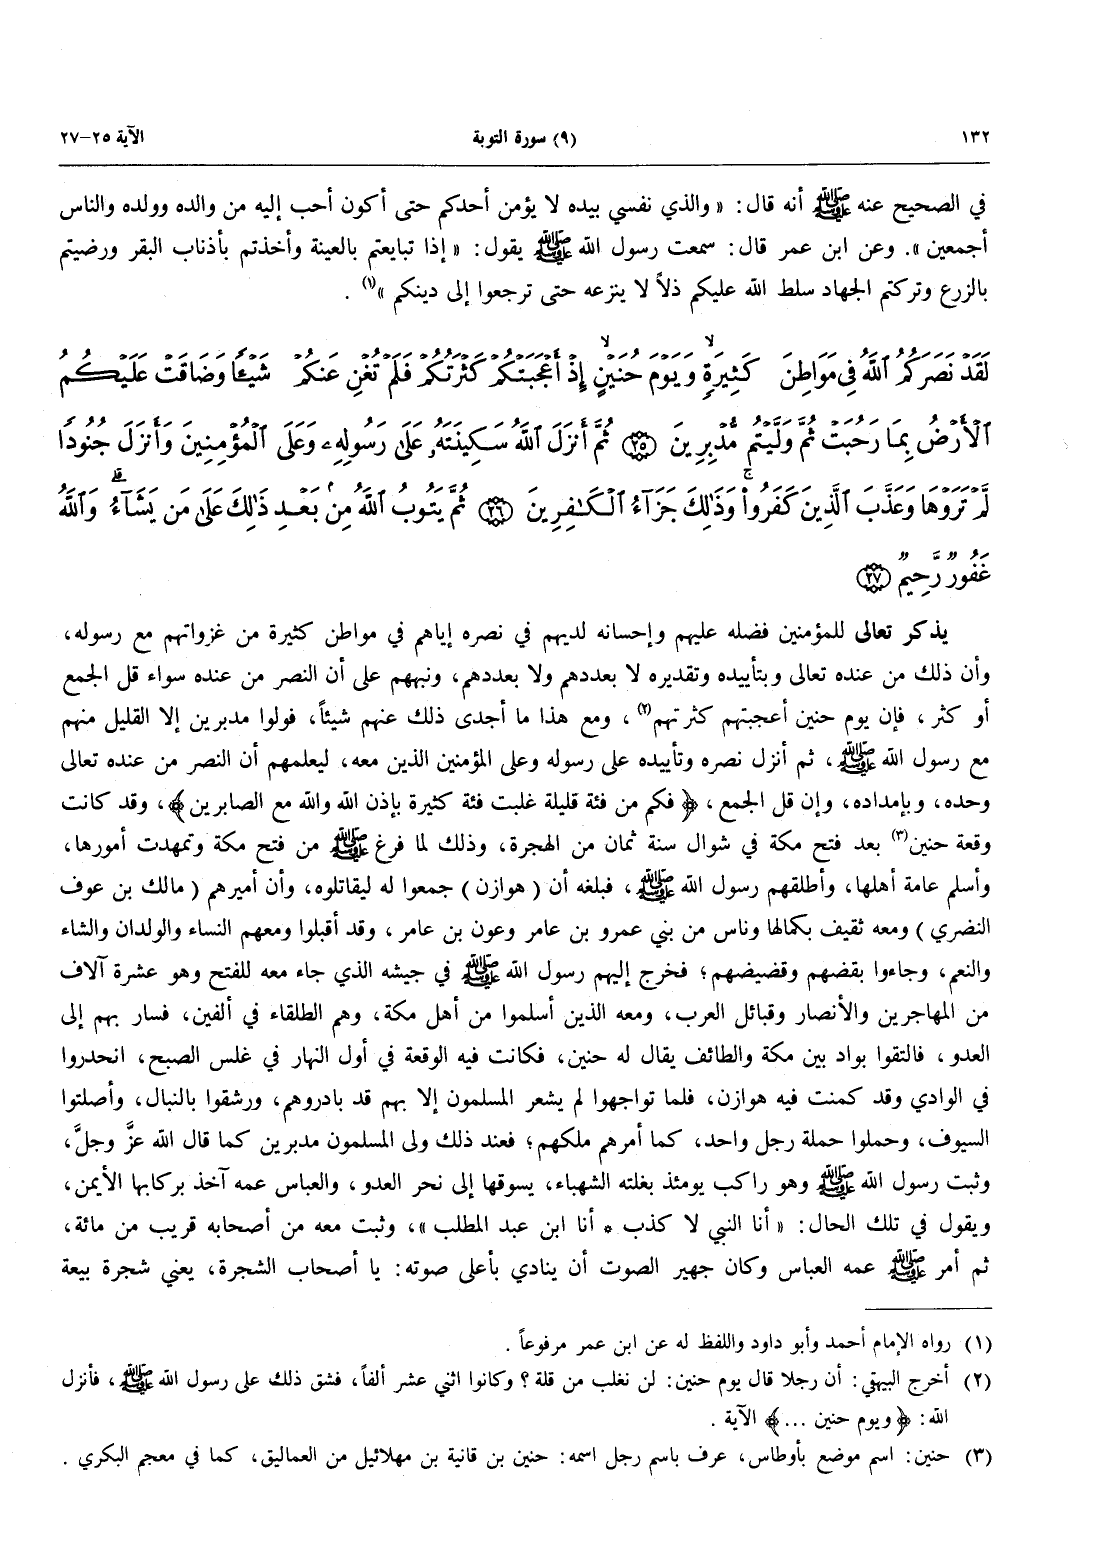 ١٣٢ (٩) سورة التوبة الآية ٢٥-٢٧
في الصحيح عنه ﷺ أنه قال: «والذي نفسي بيده لا يؤمن أحدكم حتى أكون أحب إليه من والده وولده والناس
أجمعين». وعن ابن عمر قال: سمعت رسول الله ﷺ يقول: «إذا تبايعتم بالعينة وأخذتم بأذناب البقر ورضيتم
بالزرع وتركتم الجهاد سلط الله عليكم ذلاً لا ينزعه حتى ترجعوا إلى دينكم»(١) .
لَقَدْ نَصَرَكُمُ ٱللَّهُ فِى مَوَاطِنَ كَثِيرَةٍ ۙ وَيَوْمَ حُنَيْنٍ ۙ إِذْ أَعْجَبَتْكُمْ كَثْرَتُكُمْ فَلَمْ تُغْنِ عَنكُمْ شَيْـًٔا وَضَاقَتْ عَلَيْكُمُ
ٱلْأَرْضُ بِمَا رَحُبَتْ ثُمَّ وَلَّيْتُم مُّدْبِرِينَ ﴿٢٥﴾ ثُمَّ أَنزَلَ ٱللَّهُ سَكِينَتَهُۥ عَلَىٰ رَسُولِهِۦ وَعَلَى ٱلْمُؤْمِنِينَ وَأَنزَلَ جُنُودًا
لَّمْ تَرَوْهَا وَعَذَّبَ ٱلَّذِينَ كَفَرُوا۟ ۚ وَذَٰلِكَ جَزَآءُ ٱلْكَـٰفِرِينَ ﴿٢٦﴾ ثُمَّ يَتُوبُ ٱللَّهُ مِنۢ بَعْدِ ذَٰلِكَ عَلَىٰ مَن يَشَآءُ ۗ وَٱللَّهُ
غَفُورٌ رَّحِيمٌ ﴿٢٧﴾
يذكر تعالى للمؤمنين فضله عليهم وإحسانه لديهم في نصره إياهم في مواطن كثيرة من غزواتهم مع رسوله،
وأن ذلك من عنده تعالى وبتأييده وتقديره لا بعددهم ولا بعددهم، ونبههم على أن النصر من عنده سواء قل الجمع
أو كثر ، فإن يوم حنين أعجبتهم كثرتهم(٢) ، ومع هذا ما أجدى ذلك عنهم شيئاً، فولوا مدبرين إلا القليل منهم
مع رسول الله ﷺ، ثم أنزل نصره وتأييده على رسوله وعلى المؤمنين الذين معه، ليعلمهم أن النصر من عنده تعالى
وحده، وبإمداده، وإن قل الجمع ، ﴿فكم من فئة قليلة غلبت فئة كثيرة بإذن الله والله مع الصابرين﴾، وقد كانت
وقعة حنين(٣) بعد فتح مكة في شوال سنة ثمان من الهجرة، وذلك لما فرغ ﷺ من فتح مكة وتمهدت أمورها،
وأسلم عامة أهلها، وأطلقهم رسول الله ﷺ، فبلغه أن (هوازن) جمعوا له ليقاتلوه، وأن أميرهم (مالك بن عوف
النضري) ومعه ثقيف بكمالها وناس من بني عمرو بن عامر وعون بن عامر ، وقد أقبلوا ومعهم النساء والولدان والشاء
والنعم، وجاءوا بقضهم وقضيضهم؛ فخرج إليهم رسول الله ﷺ في جيشه الذي جاء معه للفتح وهو عشرة آلاف
من المهاجرين والأنصار وقبائل العرب، ومعه الذين أسلموا من أهل مكة، وهم الطلقاء في ألفين، فسار بهم إلى
العدو ، فالتقوا بواد بين مكة والطائف يقال له حنين، فكانت فيه الوقعة في أول النهار في غلس الصبح، انحدروا
في الوادي وقد كمنت فيه هوازن، فلما تواجهوا لم يشعر المسلمون إلا بهم قد بادروهم، ورشقوا بالنبال، وأصلتوا
السيوف، وحملوا حملة رجل واحد، كما أمرهم ملكهم؛ فعند ذلك ولى المسلمون مدبرين كما قال الله عزَّ وجلَّ،
وثبت رسول الله ﷺ وهو راكب يومئذ بغلته الشهباء، يسوقها إلى نحر العدو، والعباس عمه آخذ بركابها الأيمن،
ويقول في تلك الحال: «أنا النبي لا كذب * أنا ابن عبد المطلب»، وثبت معه من أصحابه قريب من مائة،
ثم أمر ﷺ عمه العباس وكان جهير الصوت أن ينادي بأعلى صوته: يا أصحاب الشجرة، يعني شجرة بيعة
(١) رواه الإمام أحمد وأبو داود واللفظ له عن ابن عمر مرفوعاً .
(٢) أخرج البيهقي: أن رجلا قال يوم حنين: لن نغلب من قلة؟ وكانوا اثني عشر ألفاً، فشق ذلك على رسول الله ﷺ، فأنزل
الله: ﴿ويوم حنين ...﴾ الآية .
(٣) حنين: اسم موضع بأوطاس، عرف باسم رجل اسمه: حنين بن قانية بن مهلائيل من العماليق، كما في معجم البكري .